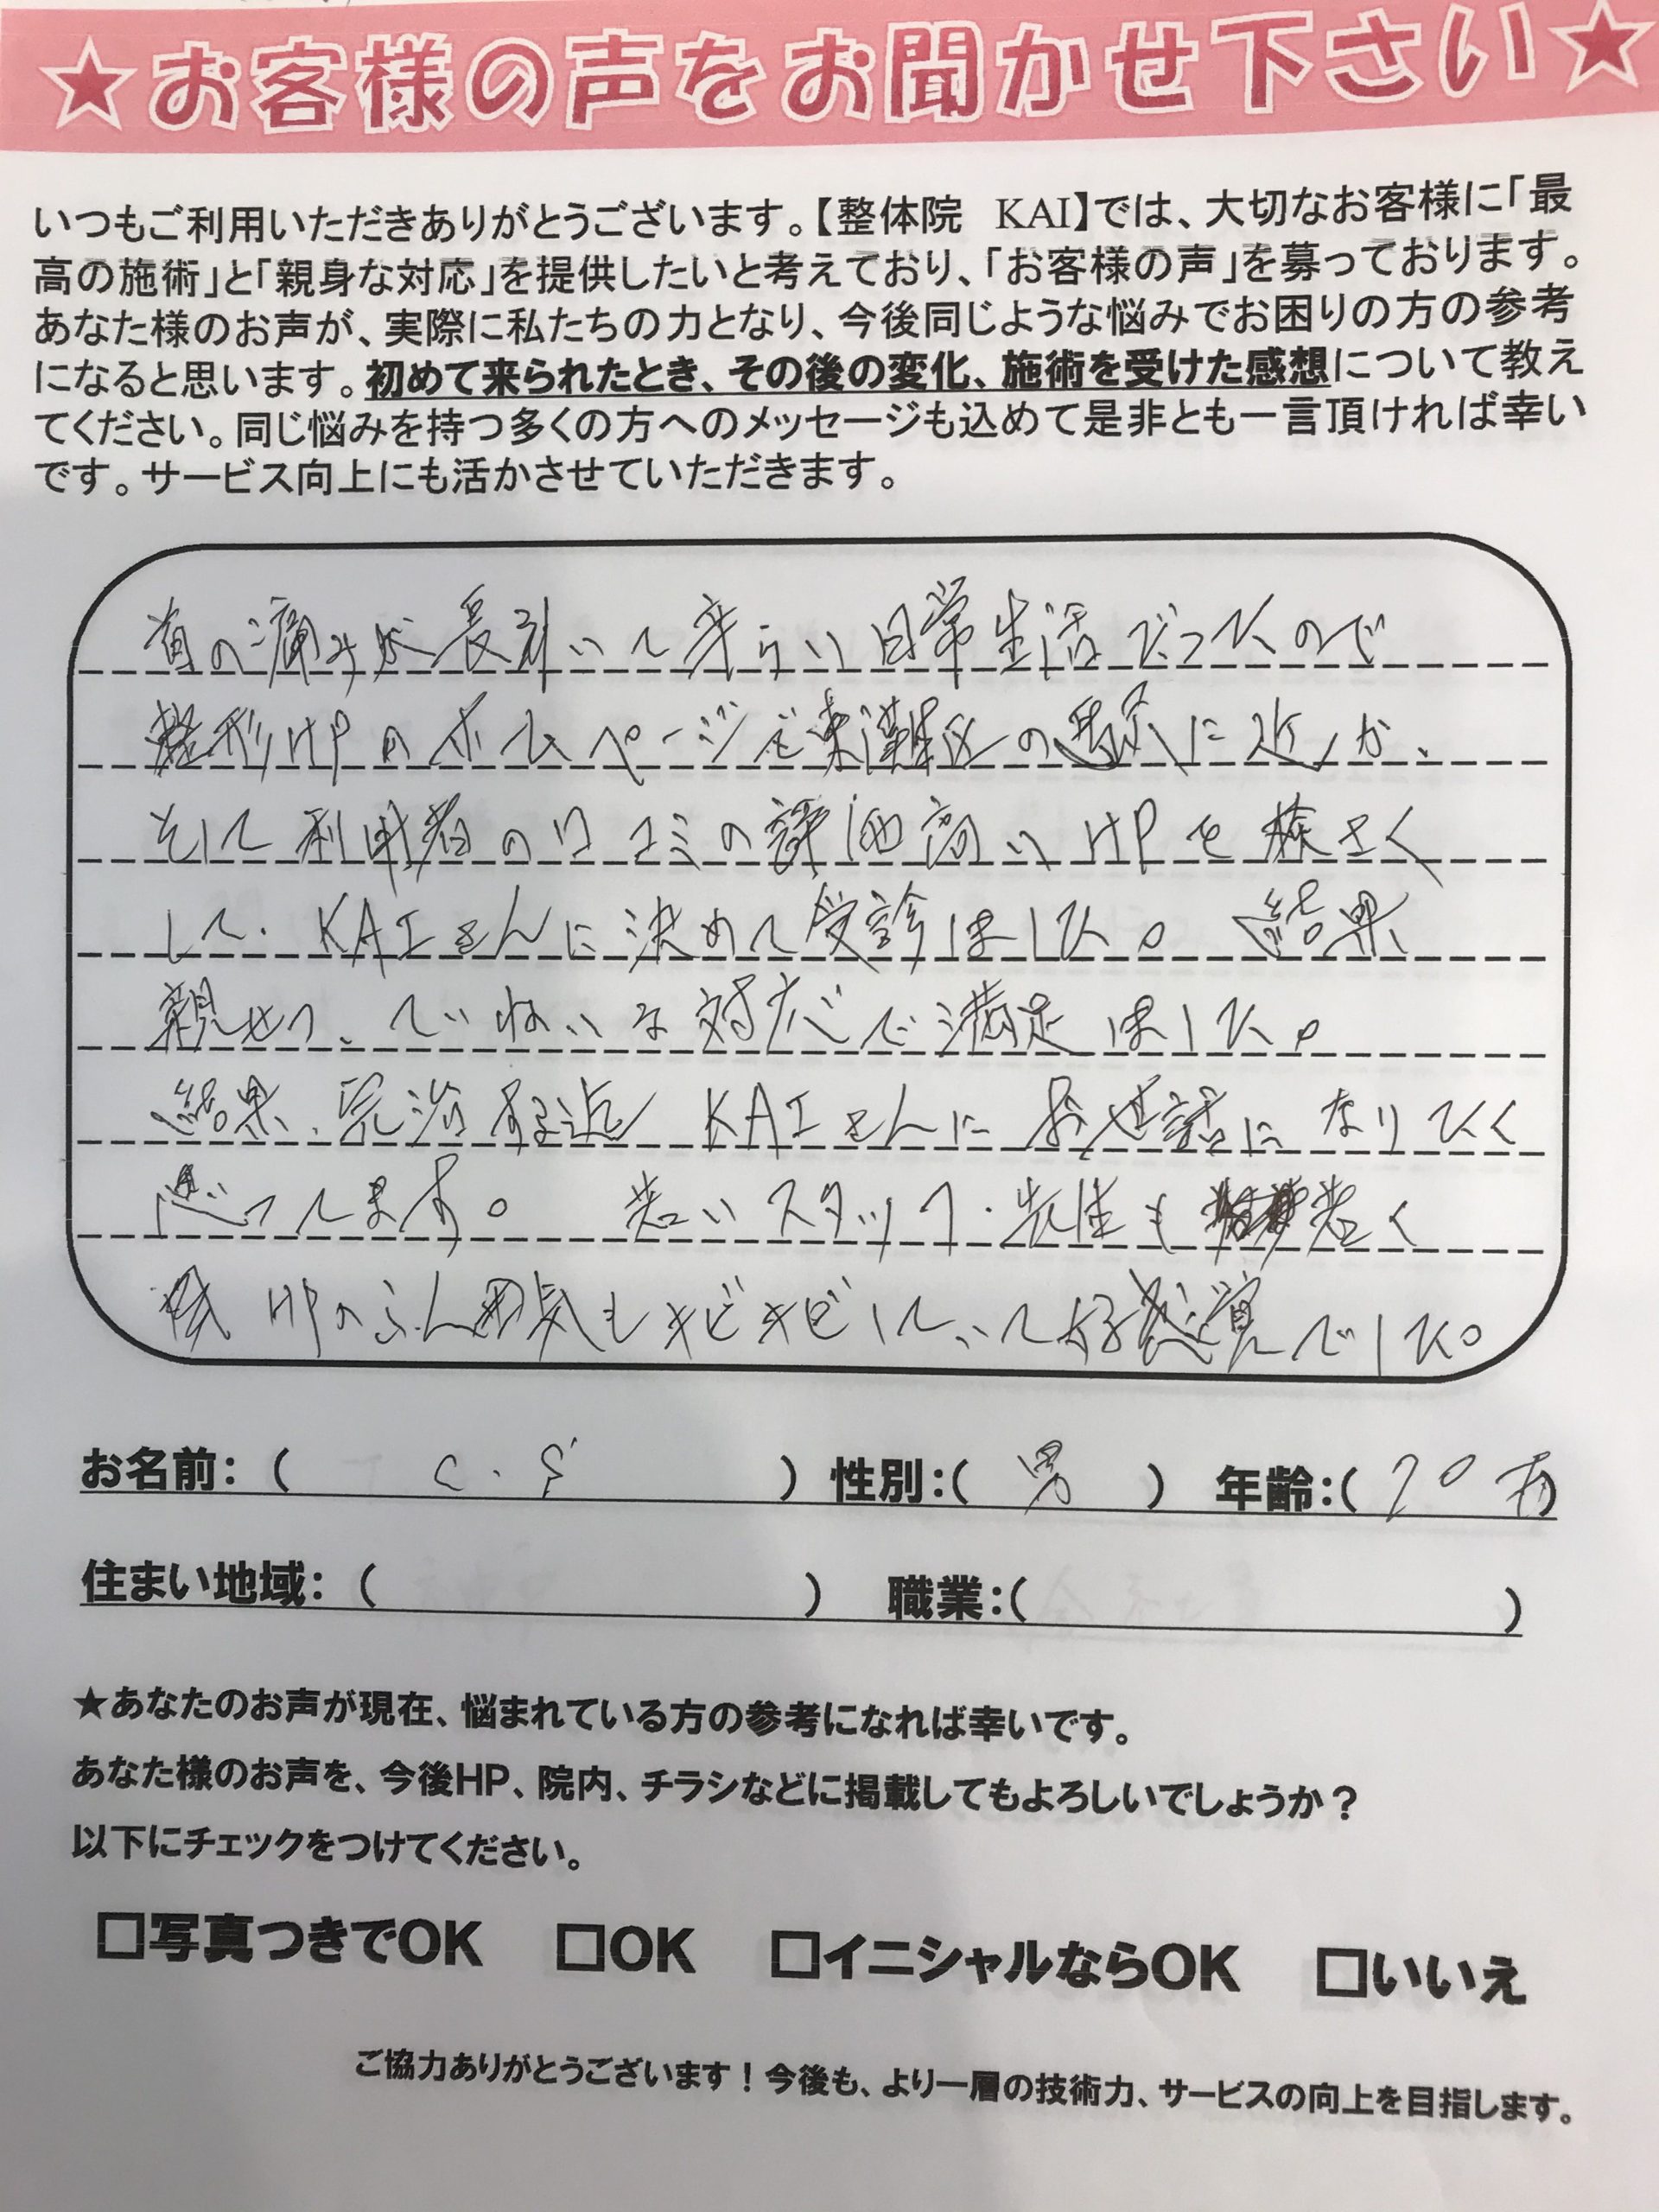 ★お客様の声をお聞かせ下さい★
いつもご利用いただきありがとうございます。【整体院 KAI】では、大切なお客様に「最
高の施術」と「親身な対応」を提供したいと考えており、「お客様の声」を募っております。
あなた様のお声が、実際に私たちの力となり、今後同じような悩みでお困りの方の参考
になると思います。初めて来られたとき、その後の変化、施術を受けた感想について教え
てください。同じ悩みを持つ多くの方へのメッセージも込めて是非とも一言頂ければ幸い
です。サービス向上にも活かさせていただきます。
首の痛みが長引いて辛らい日常生活だったので
整形HPのホムページで東灘区の 近か、
そして利用者の口コミの評価高いHPを検さく
して、KAIさんに決めて受診ました。結果
親せつ、ていねいな対応で満足ました。
結果、完治する迄 KAIさんにお世話になりたく
思ってます。 若いスタッフ・先生も 若く
HPのふん囲気もキビキビしていて好感覚でした。
お名前：( C.S ) 性別：( 男 ) 年齢：( 70才 )
住まい地域：( ) 職業：( )
★あなたのお声が現在、悩まれている方の参考になれば幸いです。
あなた様のお声を、今後HP、院内、チラシなどに掲載してもよろしいでしょうか？
以下にチェックをつけてください。
□写真つきでOK □OK □イニシャルならOK □いいえ
ご協力ありがとうございます！今後も、より一層の技術力、サービスの向上を目指します。